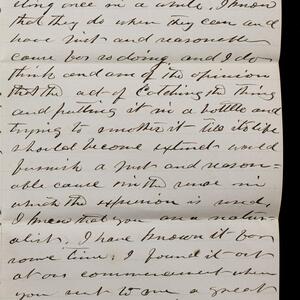 sting once in a while, I know
that they do when they can and
have just and reasonable
cause for so doing and I do
think and am of the opinion
that the act of Catching the thing
and putting it in a bottle and
trying to smother it till its life
should become extinct would
furnish a just and reason-
able cause in the sense in
which the expression is used.
I knew that you are a natur-
alist. I have known it for
some time. I found it out
at our commencement when
you sent to me a great